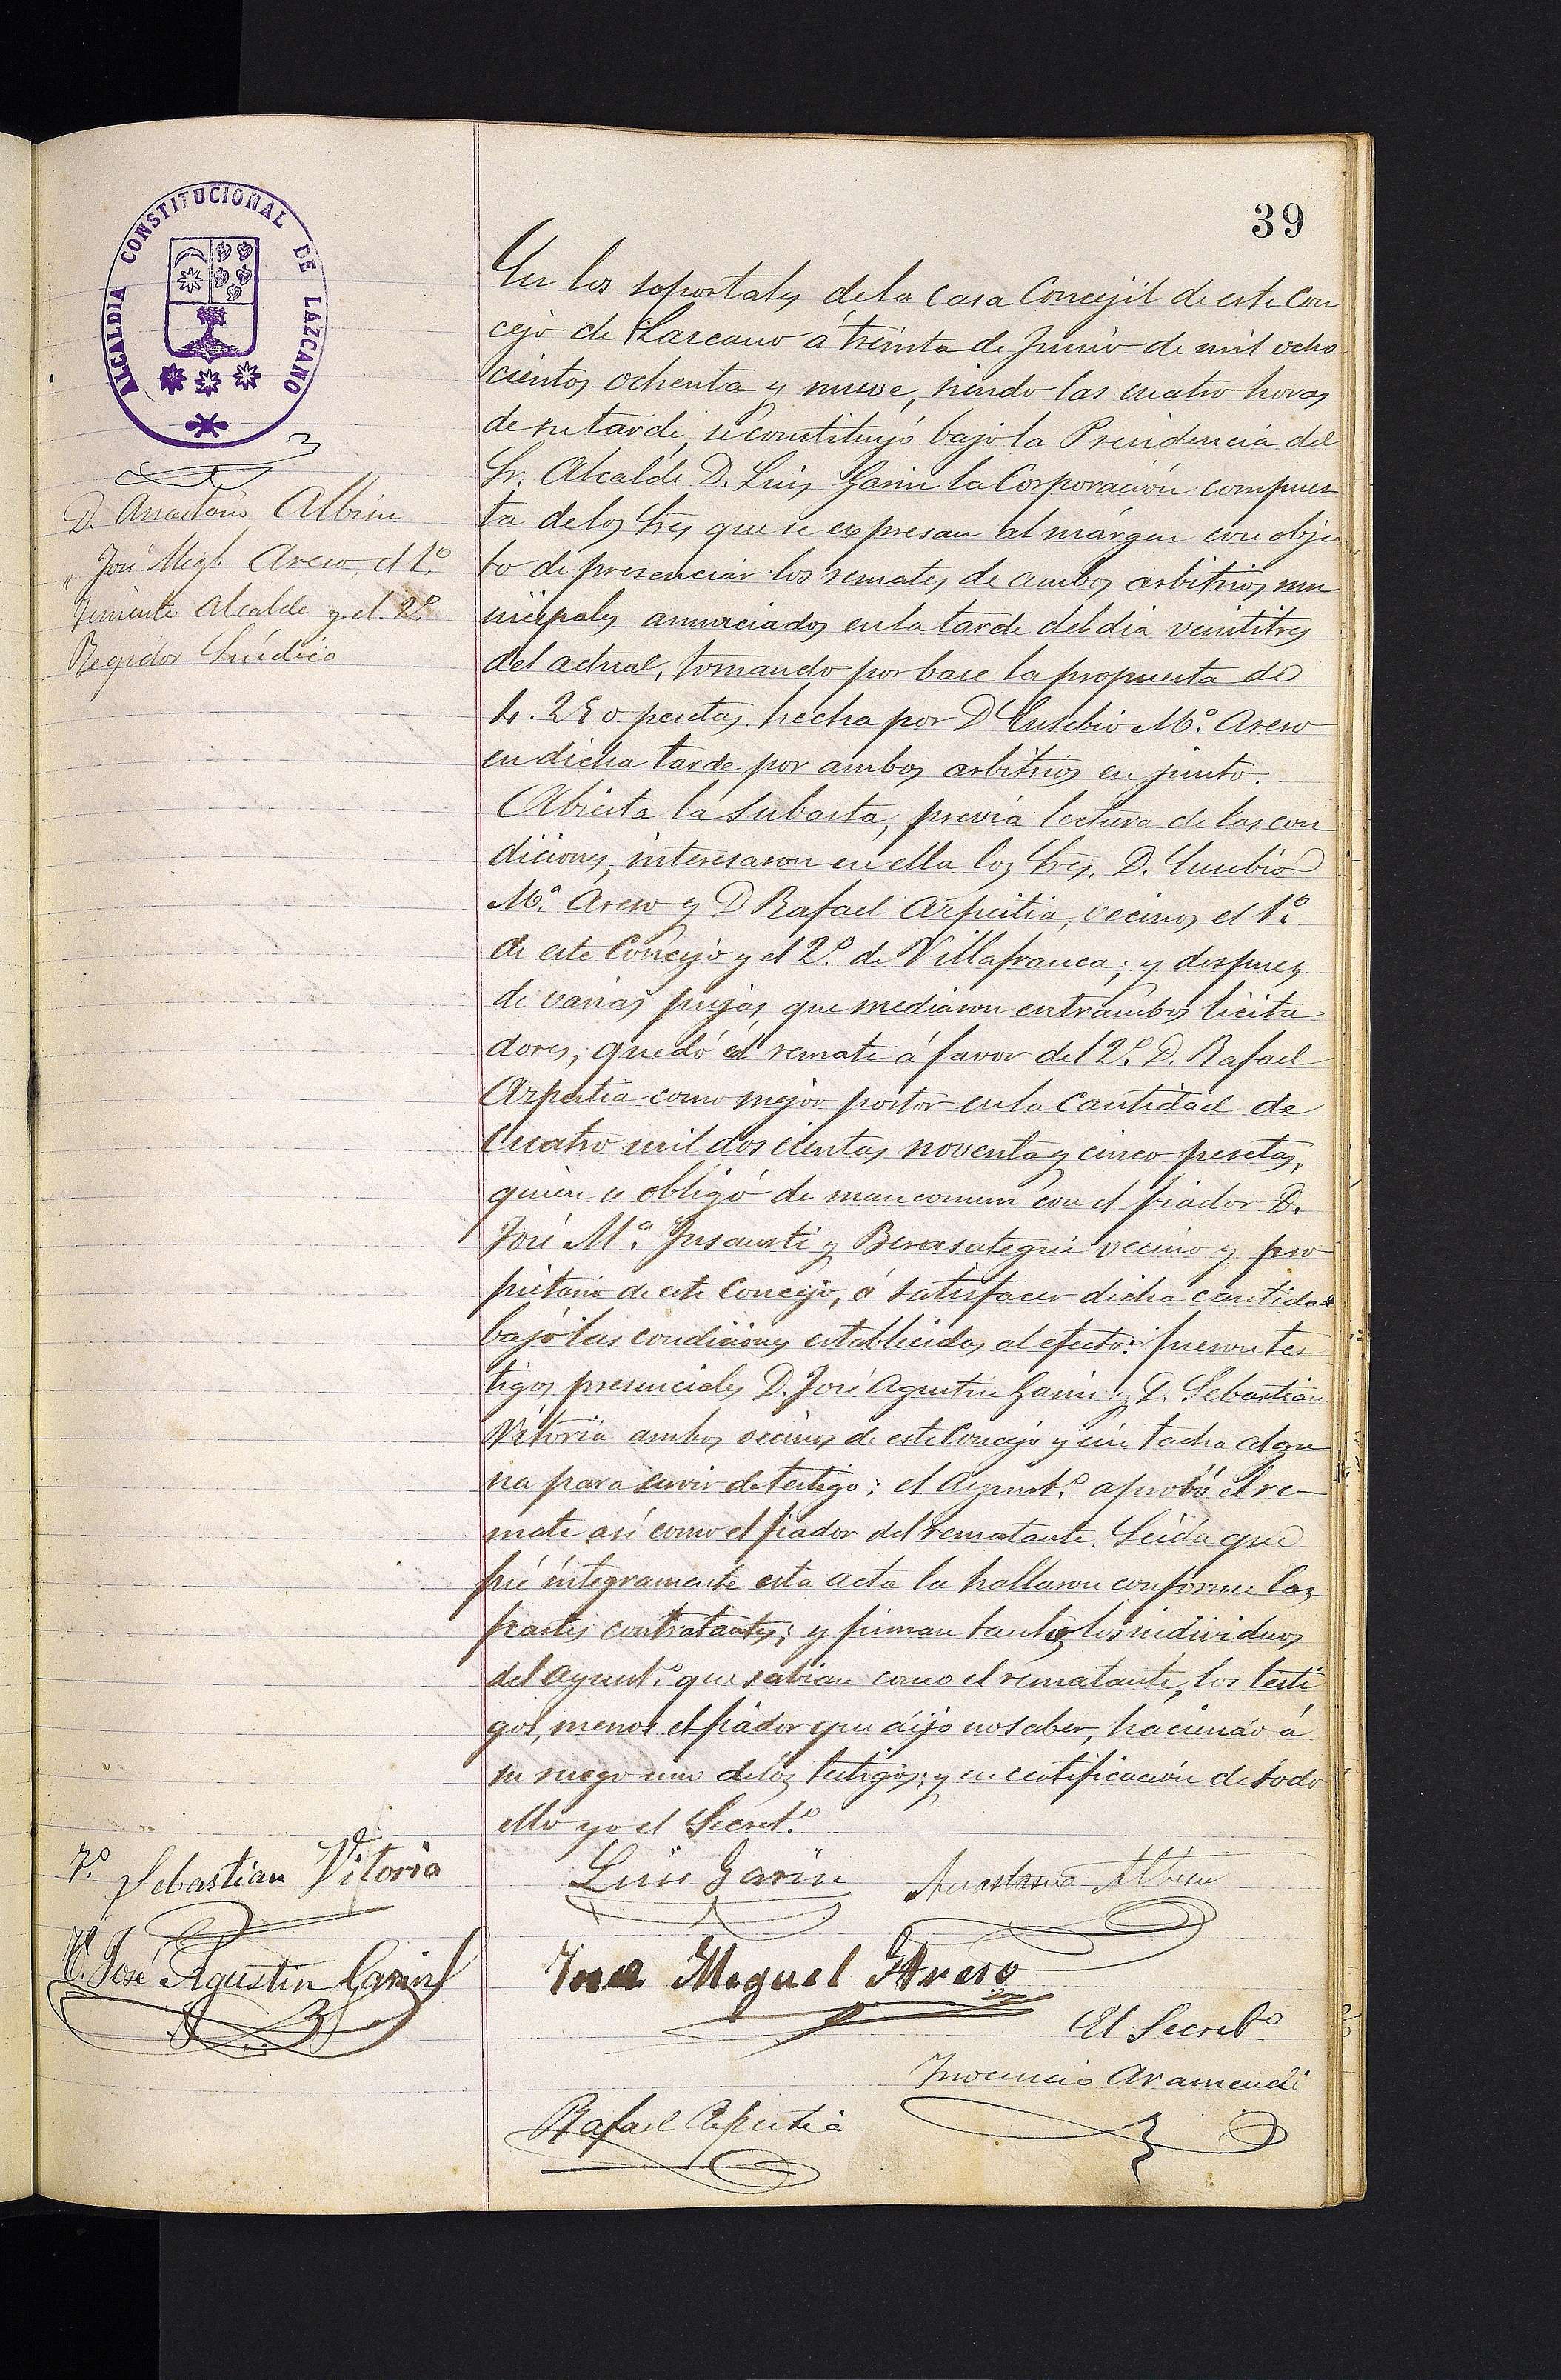 39
ALCALDIA CONSTITUCIONAL DE LAZCANO
D. Anastasio Albisu
" José Migl. Areso, el 1.º
Teniente Alcalde y el 2.º
Regidor Síndico
En los soportales de la Casa Concejil de este Con
cejo de Lazcano á treinta de Junio de mil ocho
cientos ochenta y nueve, siendo las cuatro horas
de su tarde, se constituyó bajo la Presidencia del
Sr. Alcalde D. Luis Garin la Corporación compues
ta de los Sres que se expresan al márgen con obje
to de presenciar los remates de ambos arbitrios mu
nicipales anunciados en la tarde del dia veintitres
del actual, tomando por base la propuesta de
4.250 pesetas hecha por D Eusebio M.ª Areso
en dicha tarde por ambos arbitrios en junto.
Abierta la subasta, previa lectura de las con
diciones, interesaron en ella los Sres. D. Eusebio
M.ª Areso y D Rafael Azpeitia, vecinos el 1.º
de este Concejo y el 2.º de Villafranca; y despues
de varias pujas que mediaron entrambos licita
dores, quedó el remate á favor del 2.º D. Rafael
Azpeitia como mejor postor en la cantidad de
Cuatro mil doscientas noventa y cinco pesetas,
quien se obligó de mancomun con el fiador D.
José M.ª Insausti y Berasategui vecino y pro
pietario de este Concejo, á satisfacer dicha cantidad
bajo las condiciones establecidas al efecto: fueron tes
tigos presenciales D. José Agustin Garin y D. Sebastian
Vitoria ambos vecinos de este Concejo y sin tacha algu
na para servir de testigo: el Ayunt.º aprobó el re-
mate así como el fiador del rematante. Leida que
fué íntegramente esta acta la hallaron conforme las
partes contratantes; y firman tanto los individuos
del Ayunt.º que sabian como el rematante, los testi
gos, menos el fiador que dijo no saber, haciendo á
su ruego uno de los testigos; y en certificación de todo
ello yo el Secret.º
T.º Sebastian Vitoria
Luis Garin Anastasio Albisu
T.º José Agustin Garin
Jose Miguel Areso
El Secret.º
Inocencio Aramendi
Rafael Azpeitia